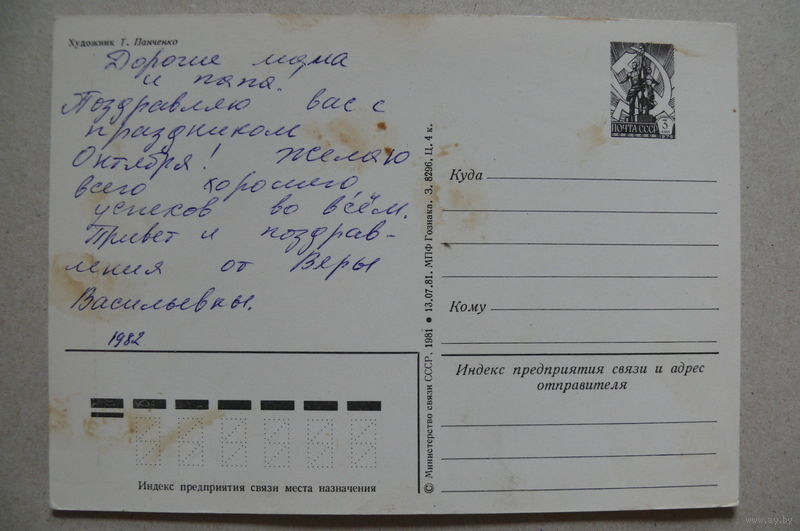 Художник Т. Панченко
Дорогие мама
и папа!
Поздравляю вас с
праздником
Октября! Желаю
всего хорошего,
успехов во всём.
Привет и поздрав-
ления от Веры
Васильевны.
1982
Индекс предприятия связи места назначения
© Министерство связи СССР, 1981 ● 13.07.81. МПФ Гознака. З. 8296, Ц. 4 к.
ПОЧТА СССР 3
Куда
Кому
Индекс предприятия связи и адрес
отправителя
www.ay.by